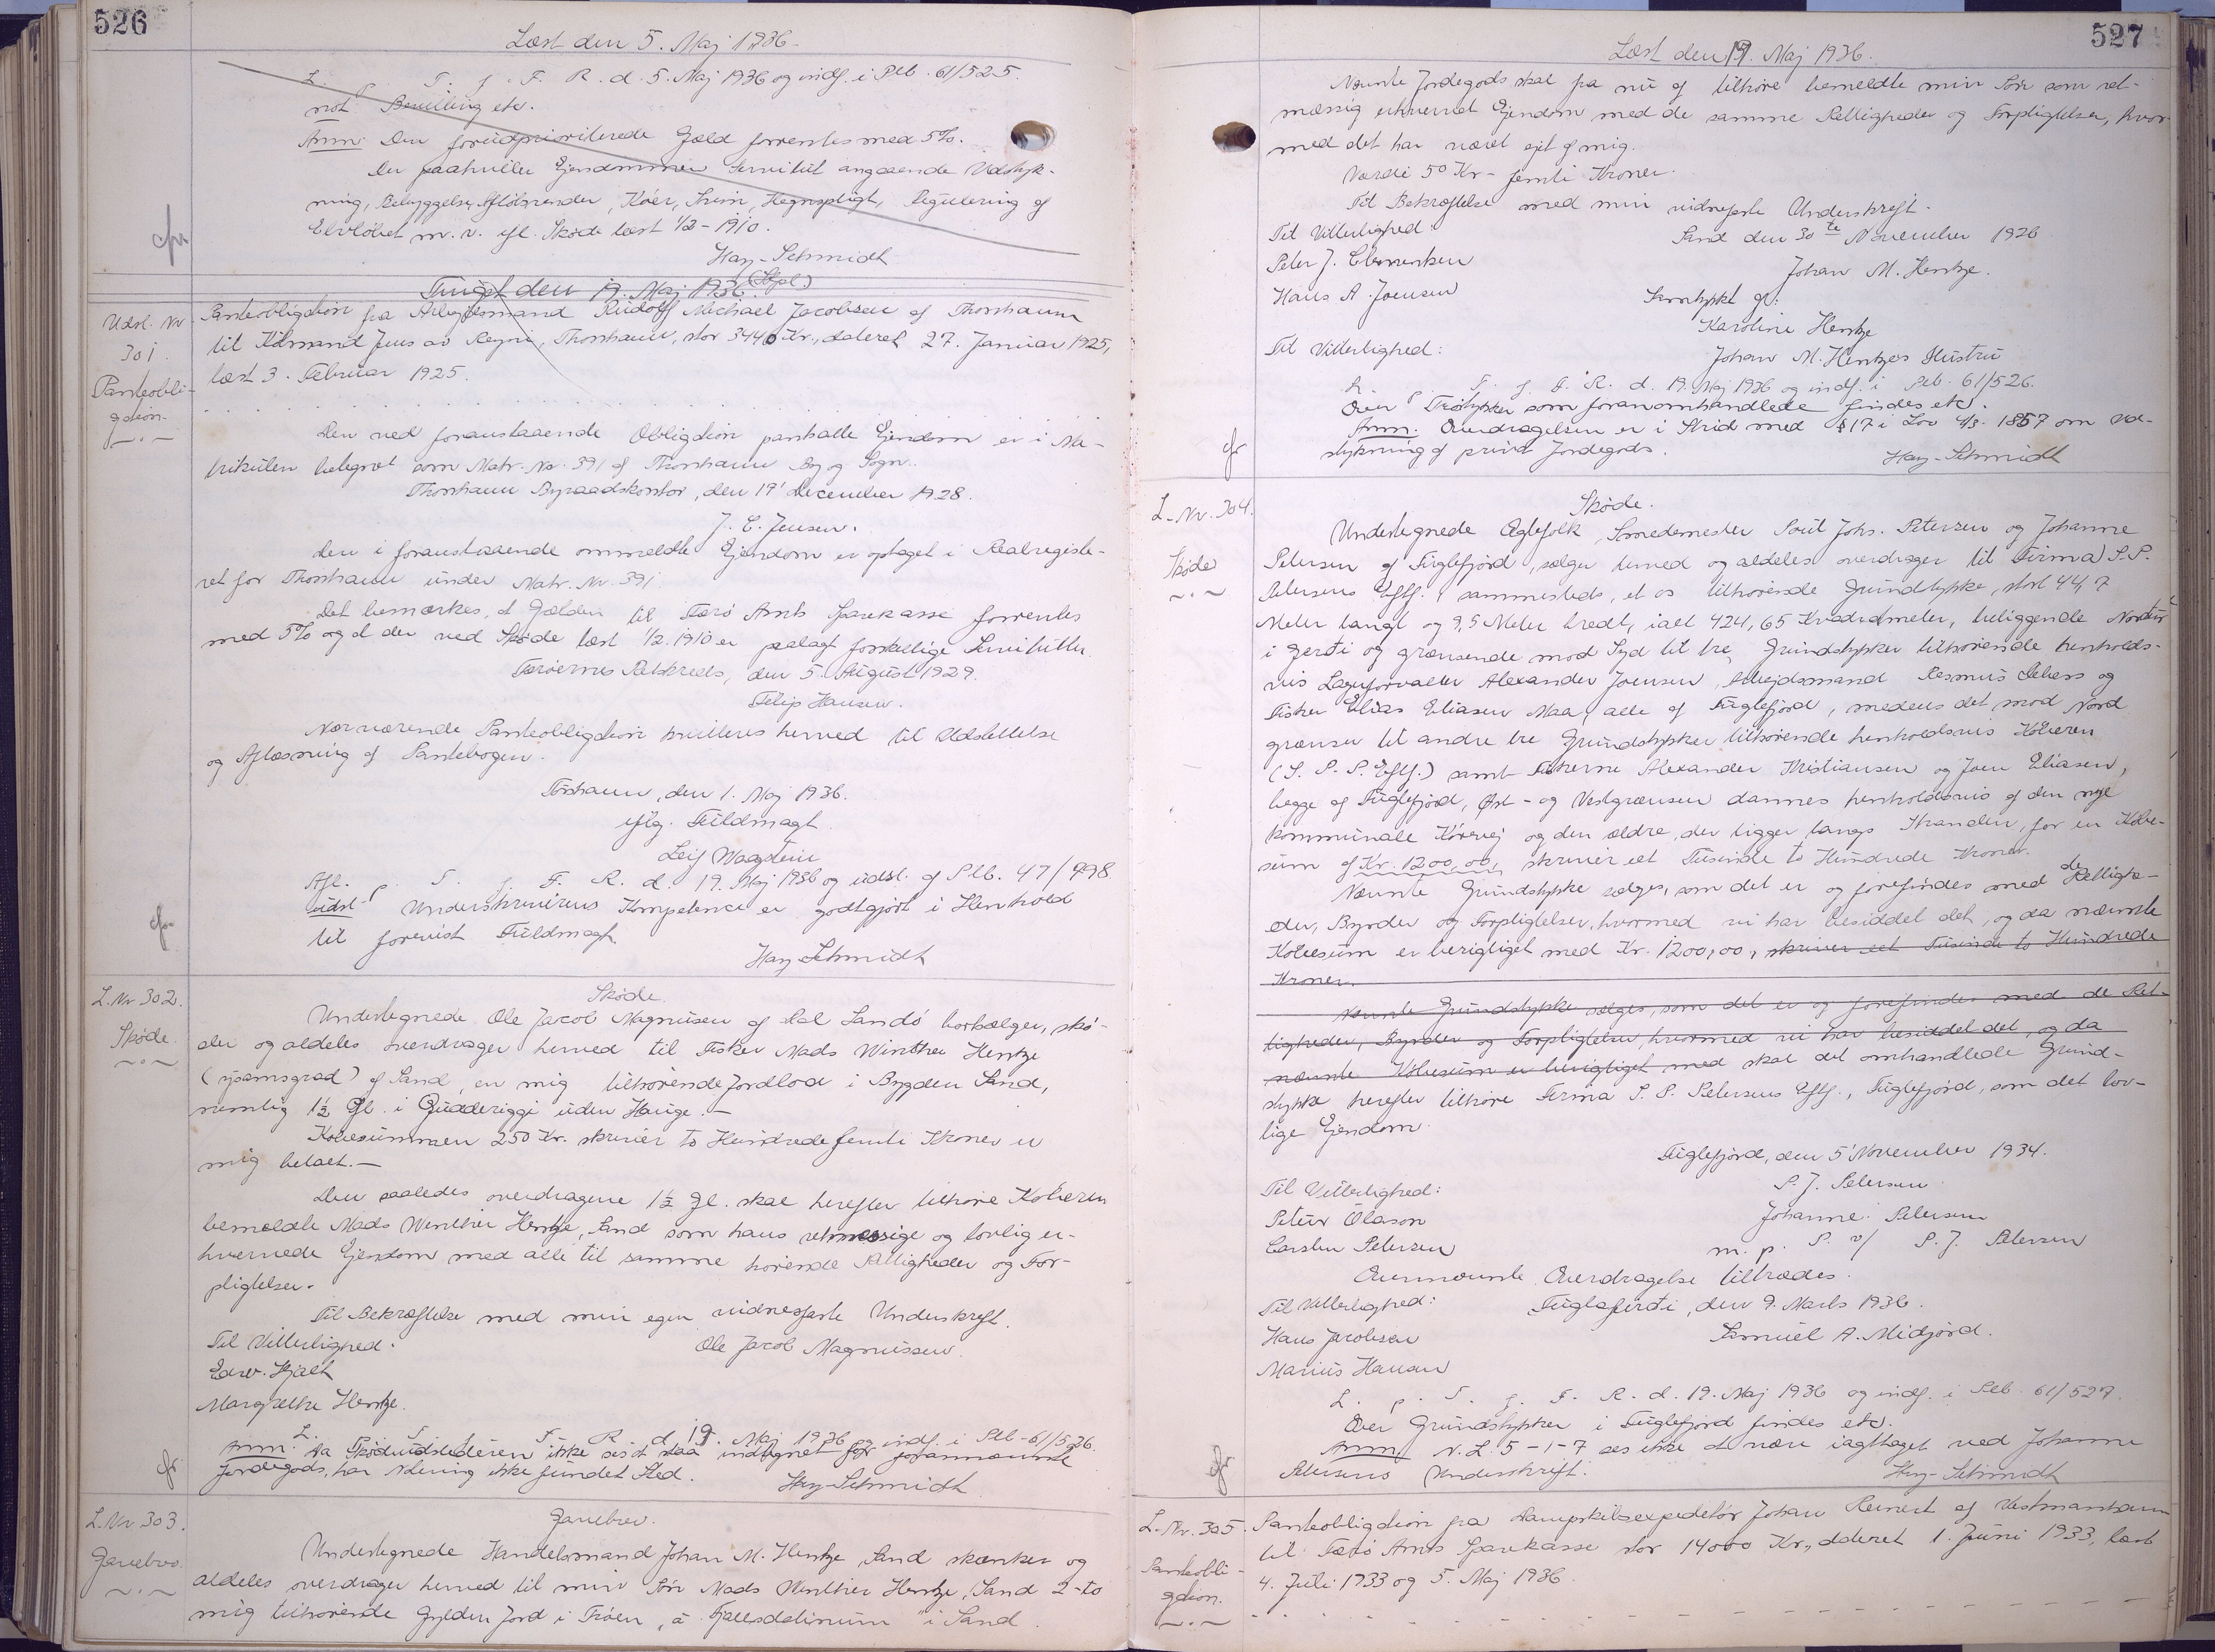 526
Læst den 5. Maj 1936.
L. p. T. f. F. R. d. 5. Maj 1936 og indf. i Ptb. 61/525.
not Bevilling etc.
Anm: Den forudprioriterede Gæld forrentes med 5%.
Der paahviler Ejendommen Servitut angaaende Udstyk-
ning, Bebyggelse, Afløbsrender, Kóer, Hegnspligt, Regulering af
Elvløbet m.v. efl. Skøde læst 1/2-1910.
cfr
Hay-Schmidt
Tinget den 19. Maj 1936
Udsl. Nr
301.
Panteobli-
gation.
Panteobligation fra Arbejdsmand Rudolf Michael Jacobsen af Thorshavn
til Købmand Jens av Reyni, Thorshavn, stor 3440 Kr., dateret 27. Januar 1925,
læst 3. Februar 1925.
Den ved foranstaaende Obligation pantsatte Ejendom er i Ma-
trikulen betegnet som Matr. Nr. 391 af Thorshavn By og Sogn.
Thorshavn Byraadskontor, den 19' December 1928.
J. C. Jensen.
Den i foranstaaende ommeldte Ejendom er optaget i Realregiste-
ret for Thorshavn under Matr. Nr. 391
Det bemærkes, at Gælden til Færø Amts Sparekasse forrentes
med 5% og at der ved Skøde læst 1/2.1910 er paalagt forskellige Servitutter.
Færøernes Retskreds, den 5. August 1929.
Filip Hansen.
Nærværende Panteobligation kvitteres herved til Udslettelse
og Aflæsning af Pantebogen.
Tórshavn, den 1. Maj 1936.
iflg. Fuldmagt
Leif Waagstein
Afl. p. T. f. F. R. d. 19. Maj 1936 og udsl. af Ptb. 47/498.
udst Underskriverens Kompetence er godtgjort i Henhold
til forevist Fuldmagt.
cfr
Hay-Schmidt
L. Nr 302.
Skøde
Skøde.
Undertegnede Ole Jacob Magnusen af Dal Sandø bortsælger, skø-
der og aldeles overdrager herved til Fisker Mads Winther Hentze
(ýsansgarð) af Sand, en mig tilhørende Jordlod i Bygden Sand,
nemlig 1½ Gl. i Gudderiggi uden Hauge. —
Købesummen 250 Kr. skriver to Hundrede femti Kroner er
mig betalt. —
Den saaledes overdragene 1½ gl. skal herefter tilhøre Køberen
bemeldte Mads Winther Hentze, Sand som hans retmæssige og lovlig er-
hvervede Ejendom med alle til samme hørende Rettigheder og For-
pligtelser.
Til Bekræftelse med min egen vidnefaste Underskrift.
Til Vitterlighed:
Ole Jacob Magnussen.
Edw. Hjalt
Margrethe Hentze.
L. p. T. f. F. R. d. 19. Maj 1936 og indf. i Ptb. 61/526.
Anm. Da Skødeudstederen ikke ses at staa indtegnet for forannævnte
Jordegods, har Notering ikke fundet Sted.
cfr
Hay-Schmidt
L. Nr 303.
Gavebrev.
Gavebrev.
Undertegnede Handelsmand Johan M. Hentze, Sand skænker og
aldeles overdrager herved til min Søn Mads Winther Hentze, Sand 2-to
mig tilhørende Gylden Jord i Trøen „á Fjallsdalinum" i Sand.
527
Læst den 19. Maj 1936.
Nævnte Jordegods skal fra nu af tilhøre bemeldte min Søn som ret-
mæssig erhvervet Ejendom med de samme Rettigheder og Forpligtelser, hvor
med det har været ejet af mig.
Værdi 50 Kr - femti Kroner.
Til Bekræftelse med min vidnefaste Underskrift.
Til Vitterlighed:
Sand den 30te November 1926
Peter J. Clementsen
Johan M. Hentze.
Hans A. Joensen
Samtykt af:
Karoline Hentze
Til Vitterlighed:
Johan M. Hentzes Hustru
L. p. T. f. F. R. d. 19. Maj 1936 og indf. i Ptb. 61/526.
Over Trøstykker som foranomhandlede findes etc.
Anm. Overdragelsen er i Strid med §17 i Lov 4/3. 1857 om Ud-
stykning af privat Jordegods.
cfr
Hay-Schmidt
L. Nr. 304.
Skøde
Skøde.
Undertegnede Ægtefolk, Smedemester Poul Johs. Petersen og Johanne
Petersen af Fuglefjord, sælger herved og aldeles overdrager til Firma S. P.
Petersens Eftf., sammesteds, et os tilhørende Grundstykke, stort 44,7
Meter langt og 9,5 Meter bredt, ialt 424,65 Kvadratmeter, beliggende Norður
i Gerði og grænsende mod Syd til tre Grundstykker tilhørende henholds-
vis Lagerforvalter Alexander Joensen, Arbejdsmand Rasmus Debess og
Fisker Elias Eliasen Maa, alle af Fuglefjord, medens det mod Nord
grænser til andre tre Grundstykker tilhørende henholdsvis Køberen
(S. P. P. Eftf.) samt Fiskerne Alexander Kristiansen og Joen Eliasen,
begge af Fuglefjord, Øst- og Vestgrænsen dannes henholdsvis af den nye
kommunale Kørevej og den ældre, der ligger langs Stranden, for en Købe-
sum af Kr. 1200,00, skriver eet Tusinde to Hundrede Kroner.
Nævnte Grundstykke sælges, som det er og forefindes med de Rettighe-
der, Byrder og Forpligtelser, hvormed vi har besiddet det, og da nævnte
Købesum er berigtiget med Kr. 1200,00, skriver eet Tusinde to Hundrede
Kroner.
Nævnte Grundstykke sælges, som det er og forefindes med de Ret-
tigheder, Byrder og Forpligtelser, hvormed vi har besiddet det, og da
nævnte Købesum er berigtiget med skal det omhandlede Grund-
stykke herefter tilhøre Firma S. P. Petersens Eftf., Fuglefjord, som det lov-
lige Ejendom.
Fuglefjord, den 5' November 1934.
Til Vitterlighed:
P. J. Petersen
Petur Ólason
Johanne Petersen
Carsten Petersen
m. p. P. v/ P. J. Petersen
Overnævnte Overdragelse tiltrædes.
Til Vitterlighed:
Fuglafirði, den 9. Marts 1936.
Hans Jacobsen
Samuel A. Midjord.
Marius Hansen
L. p. T. f. F. R. d. 19. Maj 1936 og indf. i Ptb. 61/527.
Over Grundstykker i Fuglefjord findes etc.
Anm. N. L. 5-1-7 ses ikke at være iagttaget ved Johanne
Petersens Underskrift.
cfr
Hay-Schmidt
L. Nr. 305.
Panteobli-
gation.
Panteobligation fra Dampskibsexpeditør Johan Reinert af Vestmanhavn
til Færø Amts Sparekasse stor 14000 Kr., dateret 1. Juni 1933, læst
4. Juli 1933 og 5. Maj 1936.